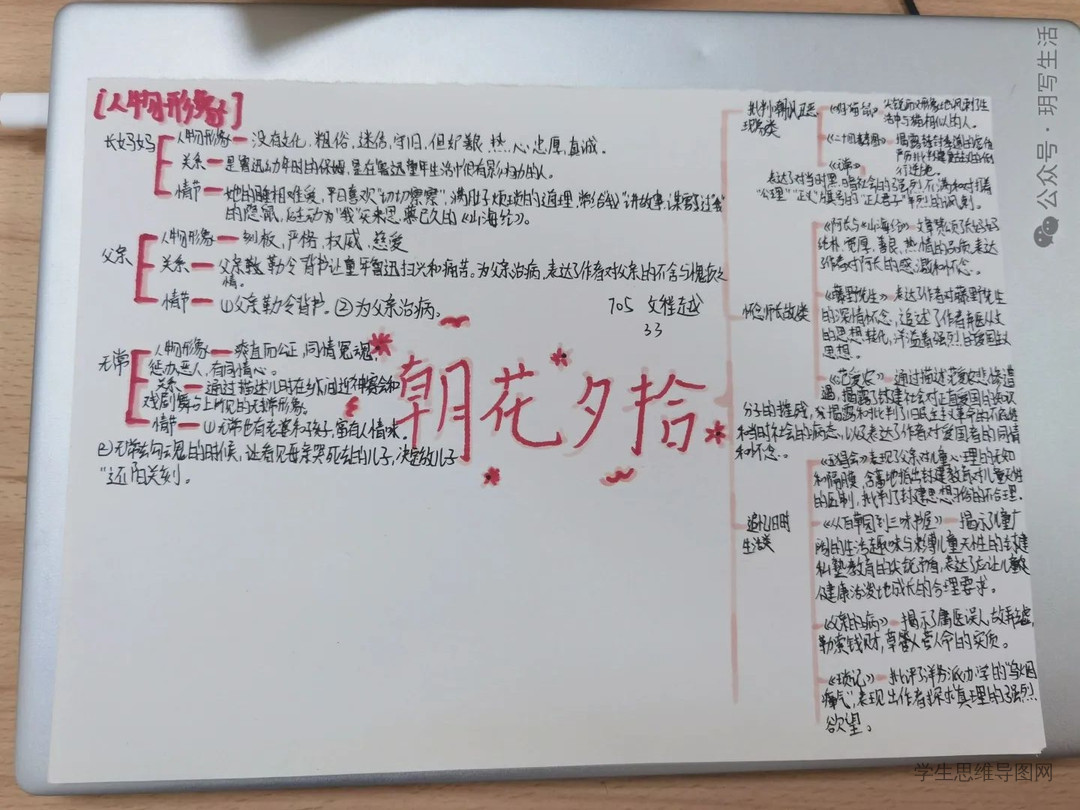 [人物形象]
长妈妈
人物形象—没有文化,粗俗,迷信,守旧,但好,热心,忠厚,真诚。
关系—是鲁迅幼年时的保姆,是在鲁迅童年生活中很有影响的人。
情节—她的睡相难受,平日喜欢"切切察察",满肚子烦琐的道理,常给"我"讲故事,谋害了过我
的隐鼠,后主动为"我"买来思慕已久的《山海经》。
父亲
人物形象—刻板,严格,权威,慈爱
关系—父亲勒令背书让童年鲁迅扫兴和痛苦。为父亲治病,表达了作者对父亲的不舍与愧疚之
情。
情节—①父亲勒令背书。②为父亲治病。
705
33
无常
人物形象—爽直而公正,同情冤魂,
惩办恶人,有同情心。
关系—通过描述儿时在乡间迎神赛会和
戏剧舞台上所见的无常形象。
情节—①无常也有老婆和孩子,富有人情味。
②无常去勾魂的时候,让看见母亲哭死去的儿子,决定放儿子
"还阳"片刻。
朝花夕拾
《二十四孝图》
表达了对当时黑暗社会的强烈不满和对打着
"公理""正义"旗号的"正人君子"的讽刺。
怀念师长故友类
《阿长与《山海经》》—文章赞颂了长妈妈
纯朴,宽厚,善良,热情的品质,表达
了作者对阿长的感激和怀念。
《藤野先生》表达了作者对藤野先生
的深情怀念,追述了作者弃医从文
的思想转化,洋溢着强烈的爱国主义
思想。
《范爱农》—通过描述范爱农悲惨遭
遇,揭露了封建社会对正直爱国的知识
分子的摧残,揭露和批判了旧民主主义革命的不彻底
和当时社会的病态,以及表达了作者对爱国者的同情
和怀念。
追忆旧时
生活类
《五猖会》表现了父亲对儿童心理的无知
和隔膜,含蓄地指出封建教育对儿童天性
的压制,批判了封建思想习俗的不合理。
《从百草园到三味书屋》—揭示了儿童广
阔的生活趣味与束缚儿童天性的封建
私塾教育的尖锐矛盾,表达了应让儿童
健康活泼地成长的合理要求。
《父亲的病》—揭示了庸医误人,故弄玄虚,
勒索钱财,草菅人命的实质。
《琐记》—批评了洋务派办学的"乌烟
瘴气",表现出作者探求真理的强烈
欲望。
公众号·玥写生活
学生思维导图网